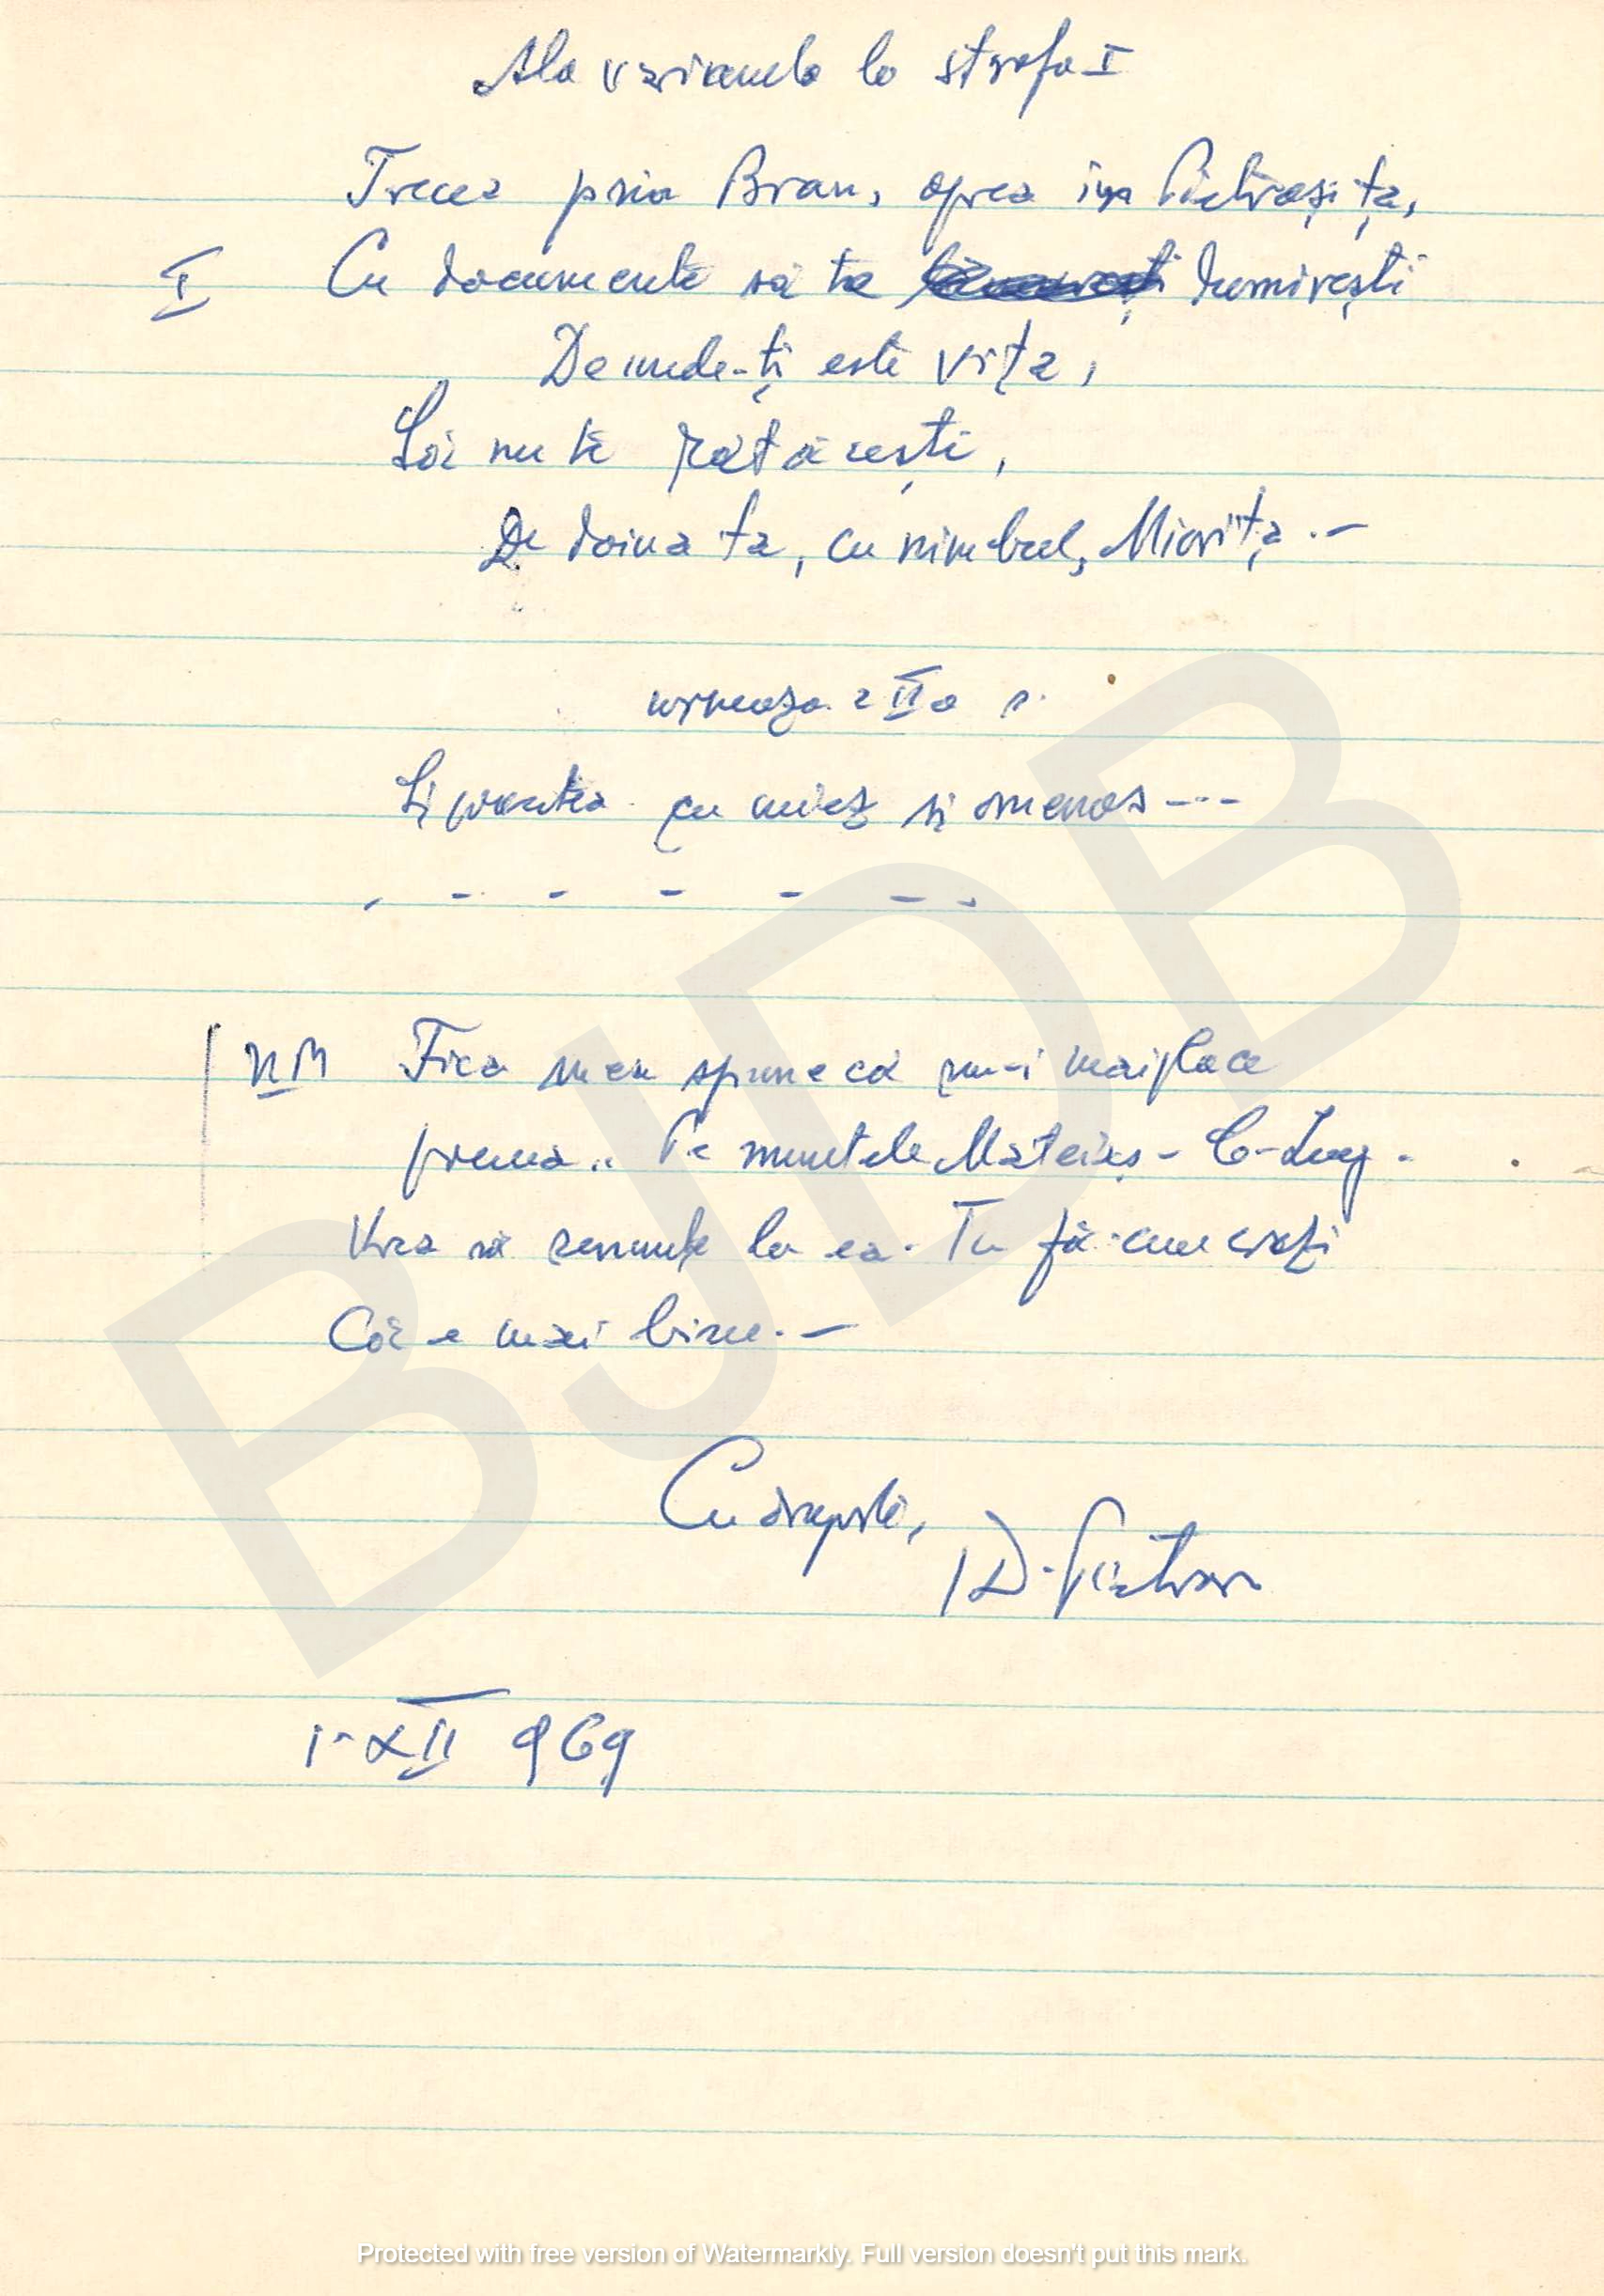 Ala varianta la strofa I
Trecea prin Bran, oprea în Pietroșița,
I Cu documente să te dumirești
De unde-ți este vița,
Să nu te rătăcești,
De doina ta, cu nimbul, Miorița.-
urmeaza a II a s.
Și poartea cu miez si omenos ---
- - - - - - -
Fica mea spune că nu-i mai place
prima.. Pe muntele Mateiaș - C-Lung.
Vrea să renunțe la ea. Tu fă cum crezi
Că e mai bine.-
Cu drag,
D. Pietrar
1-XII 969
BJDB
Protected with free version of Watermarkly. Full version doesn't put this mark.